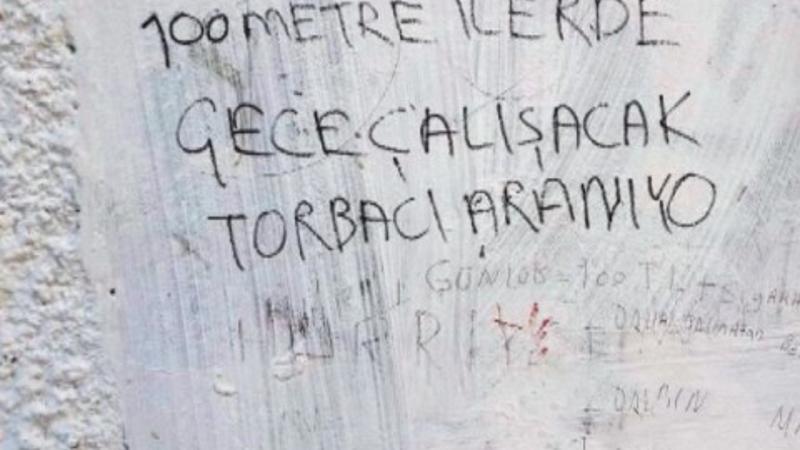 100 METRE İLERDE
GECE ÇALIŞACAK
TORBACI ARANIYO
GÜNLÜK = 100 TL + SİGARA